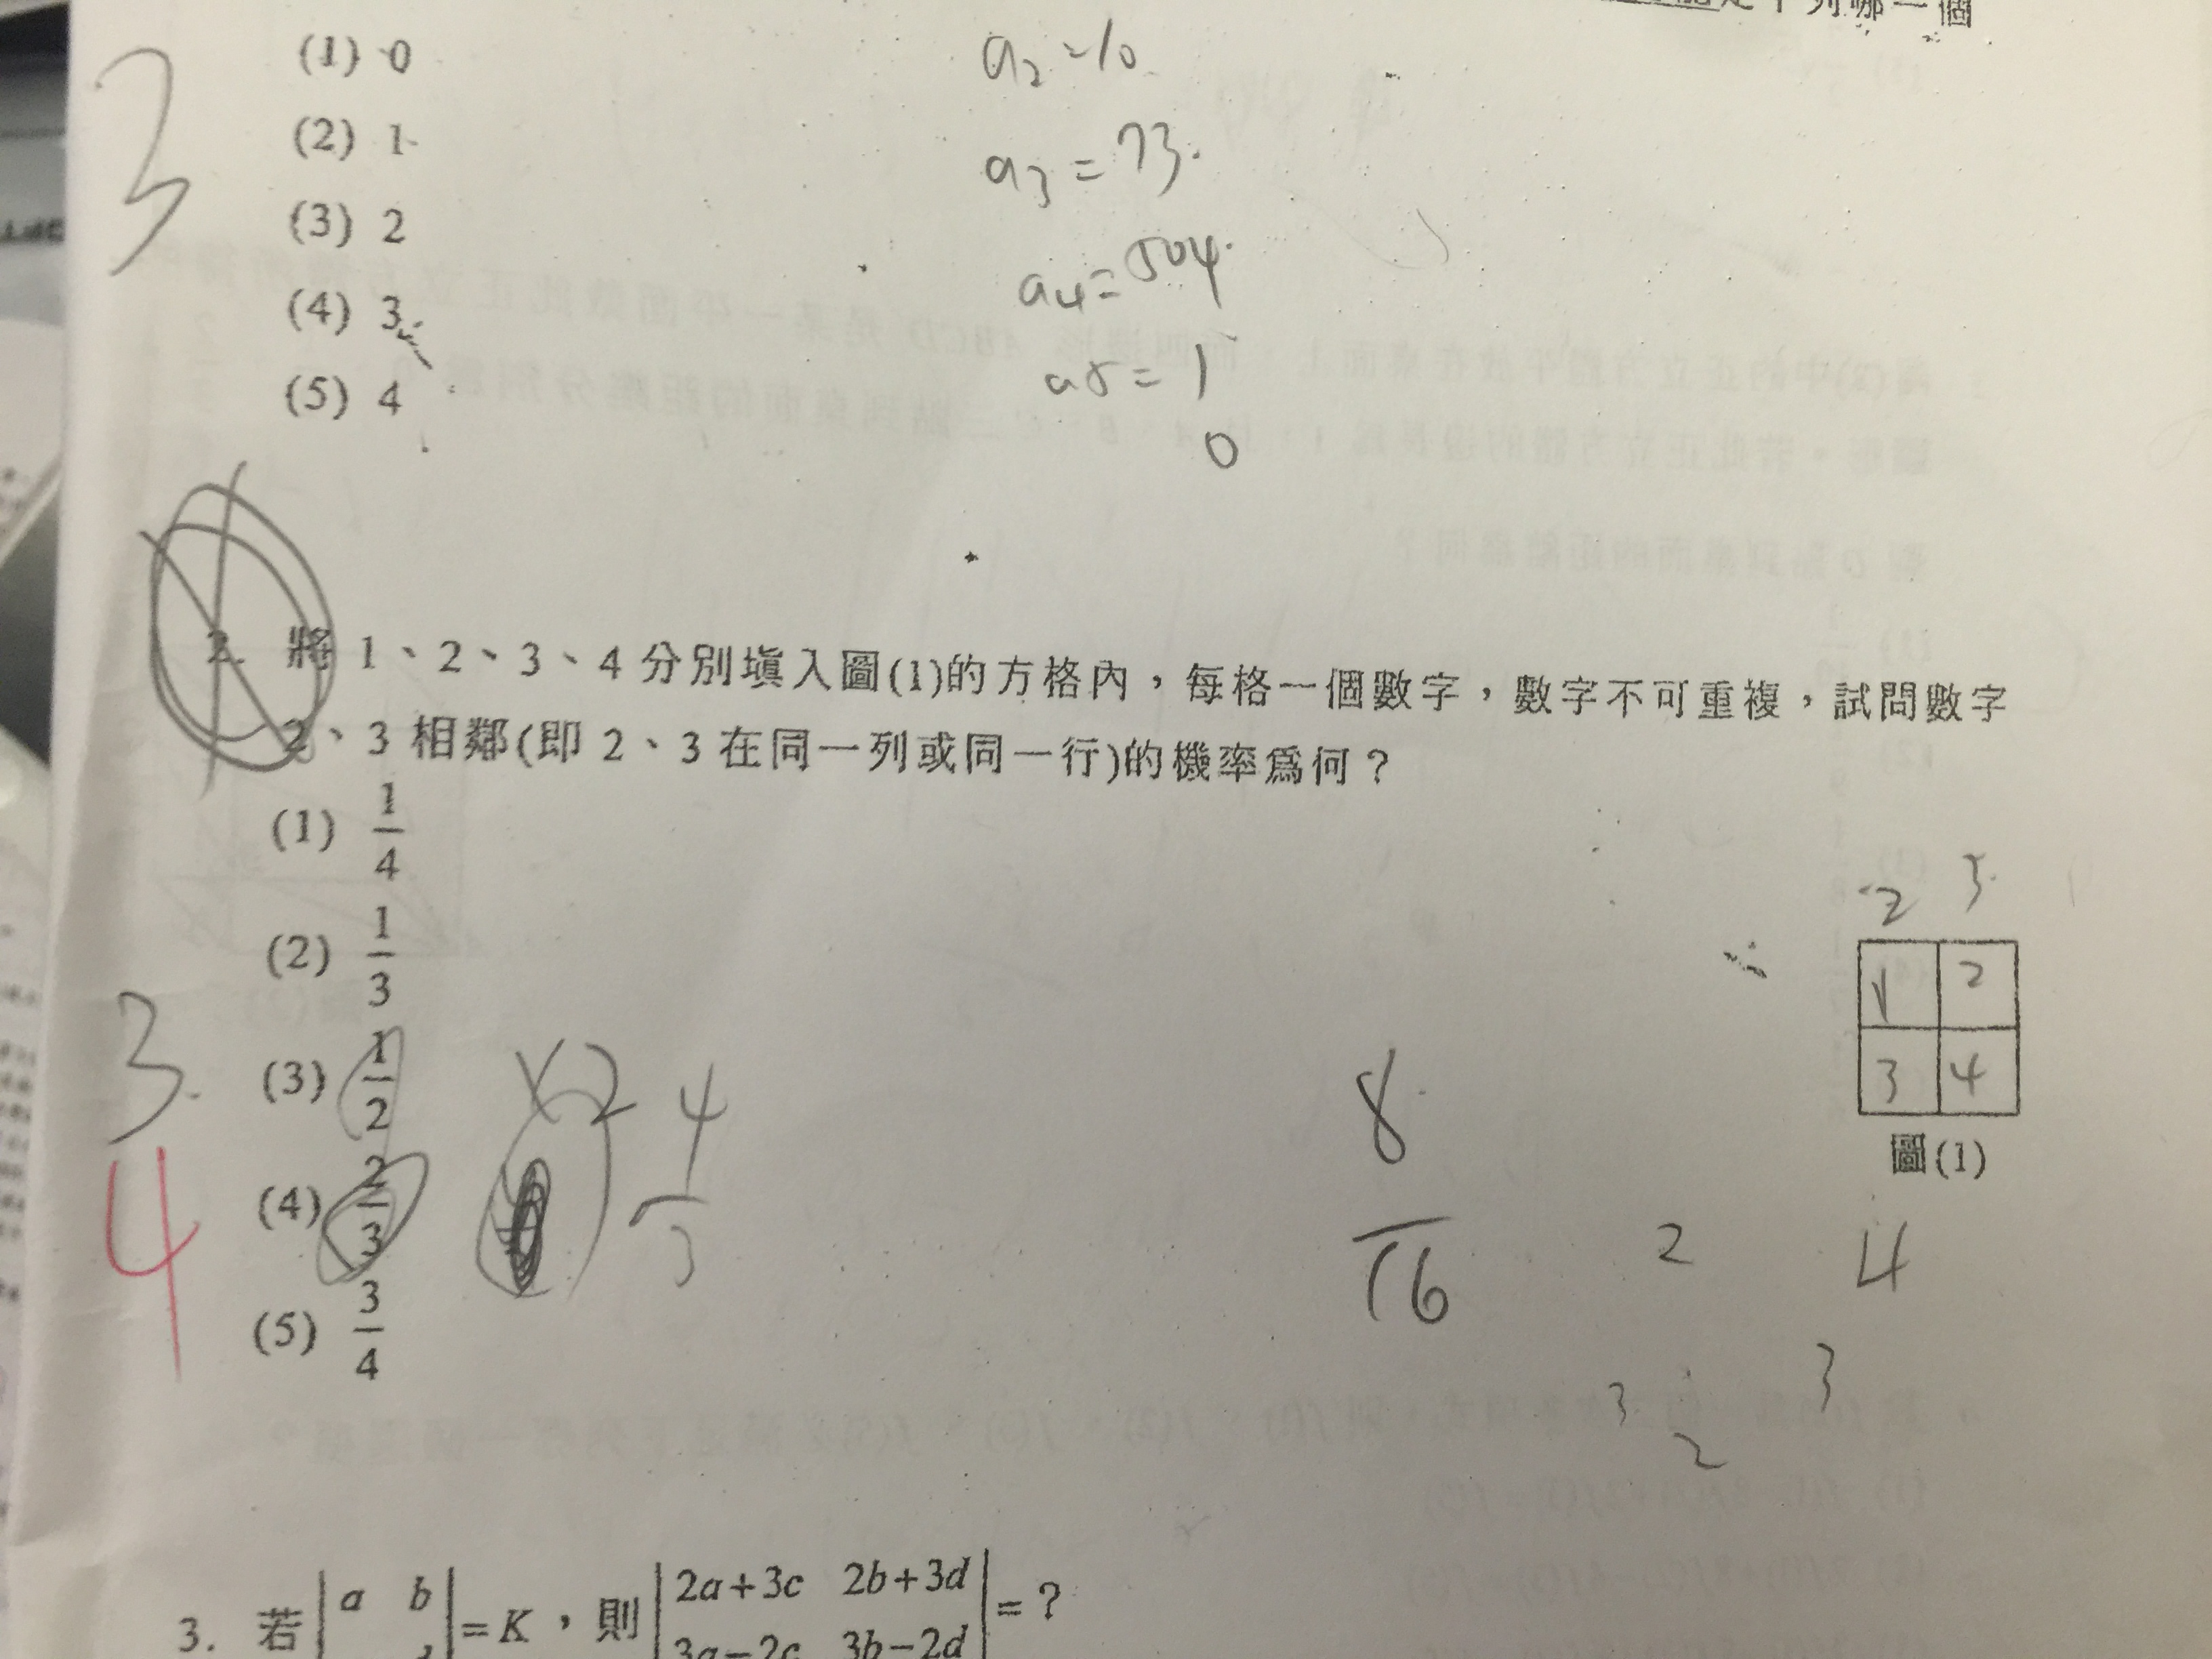 列哪一個
(1) 0
(2) 1
(3) 2
(4) 3
(5) 4
3
a₂ = 10
a₃ = 73
a₄ = 504
a₅ = 1
0
2. 將 1、2、3、4 分別塡入圖(1)的方格內，每格一個數字，數字不可重複，試問數字
2、3 相鄰(即 2、3 在同一列或同一行)的機率爲何？
(1) 1/4
(2) 1/3
(3) 1/2
(4) 2/3
(5) 3/4
3.
4
×2
4/3
8/16
2 3
1 2
3 4
圖(1)
2 4
3 3
2
3. 若 |a b
d| = K，則 |2a+3c 2b+3d
3a−2c 3b−2d| = ？